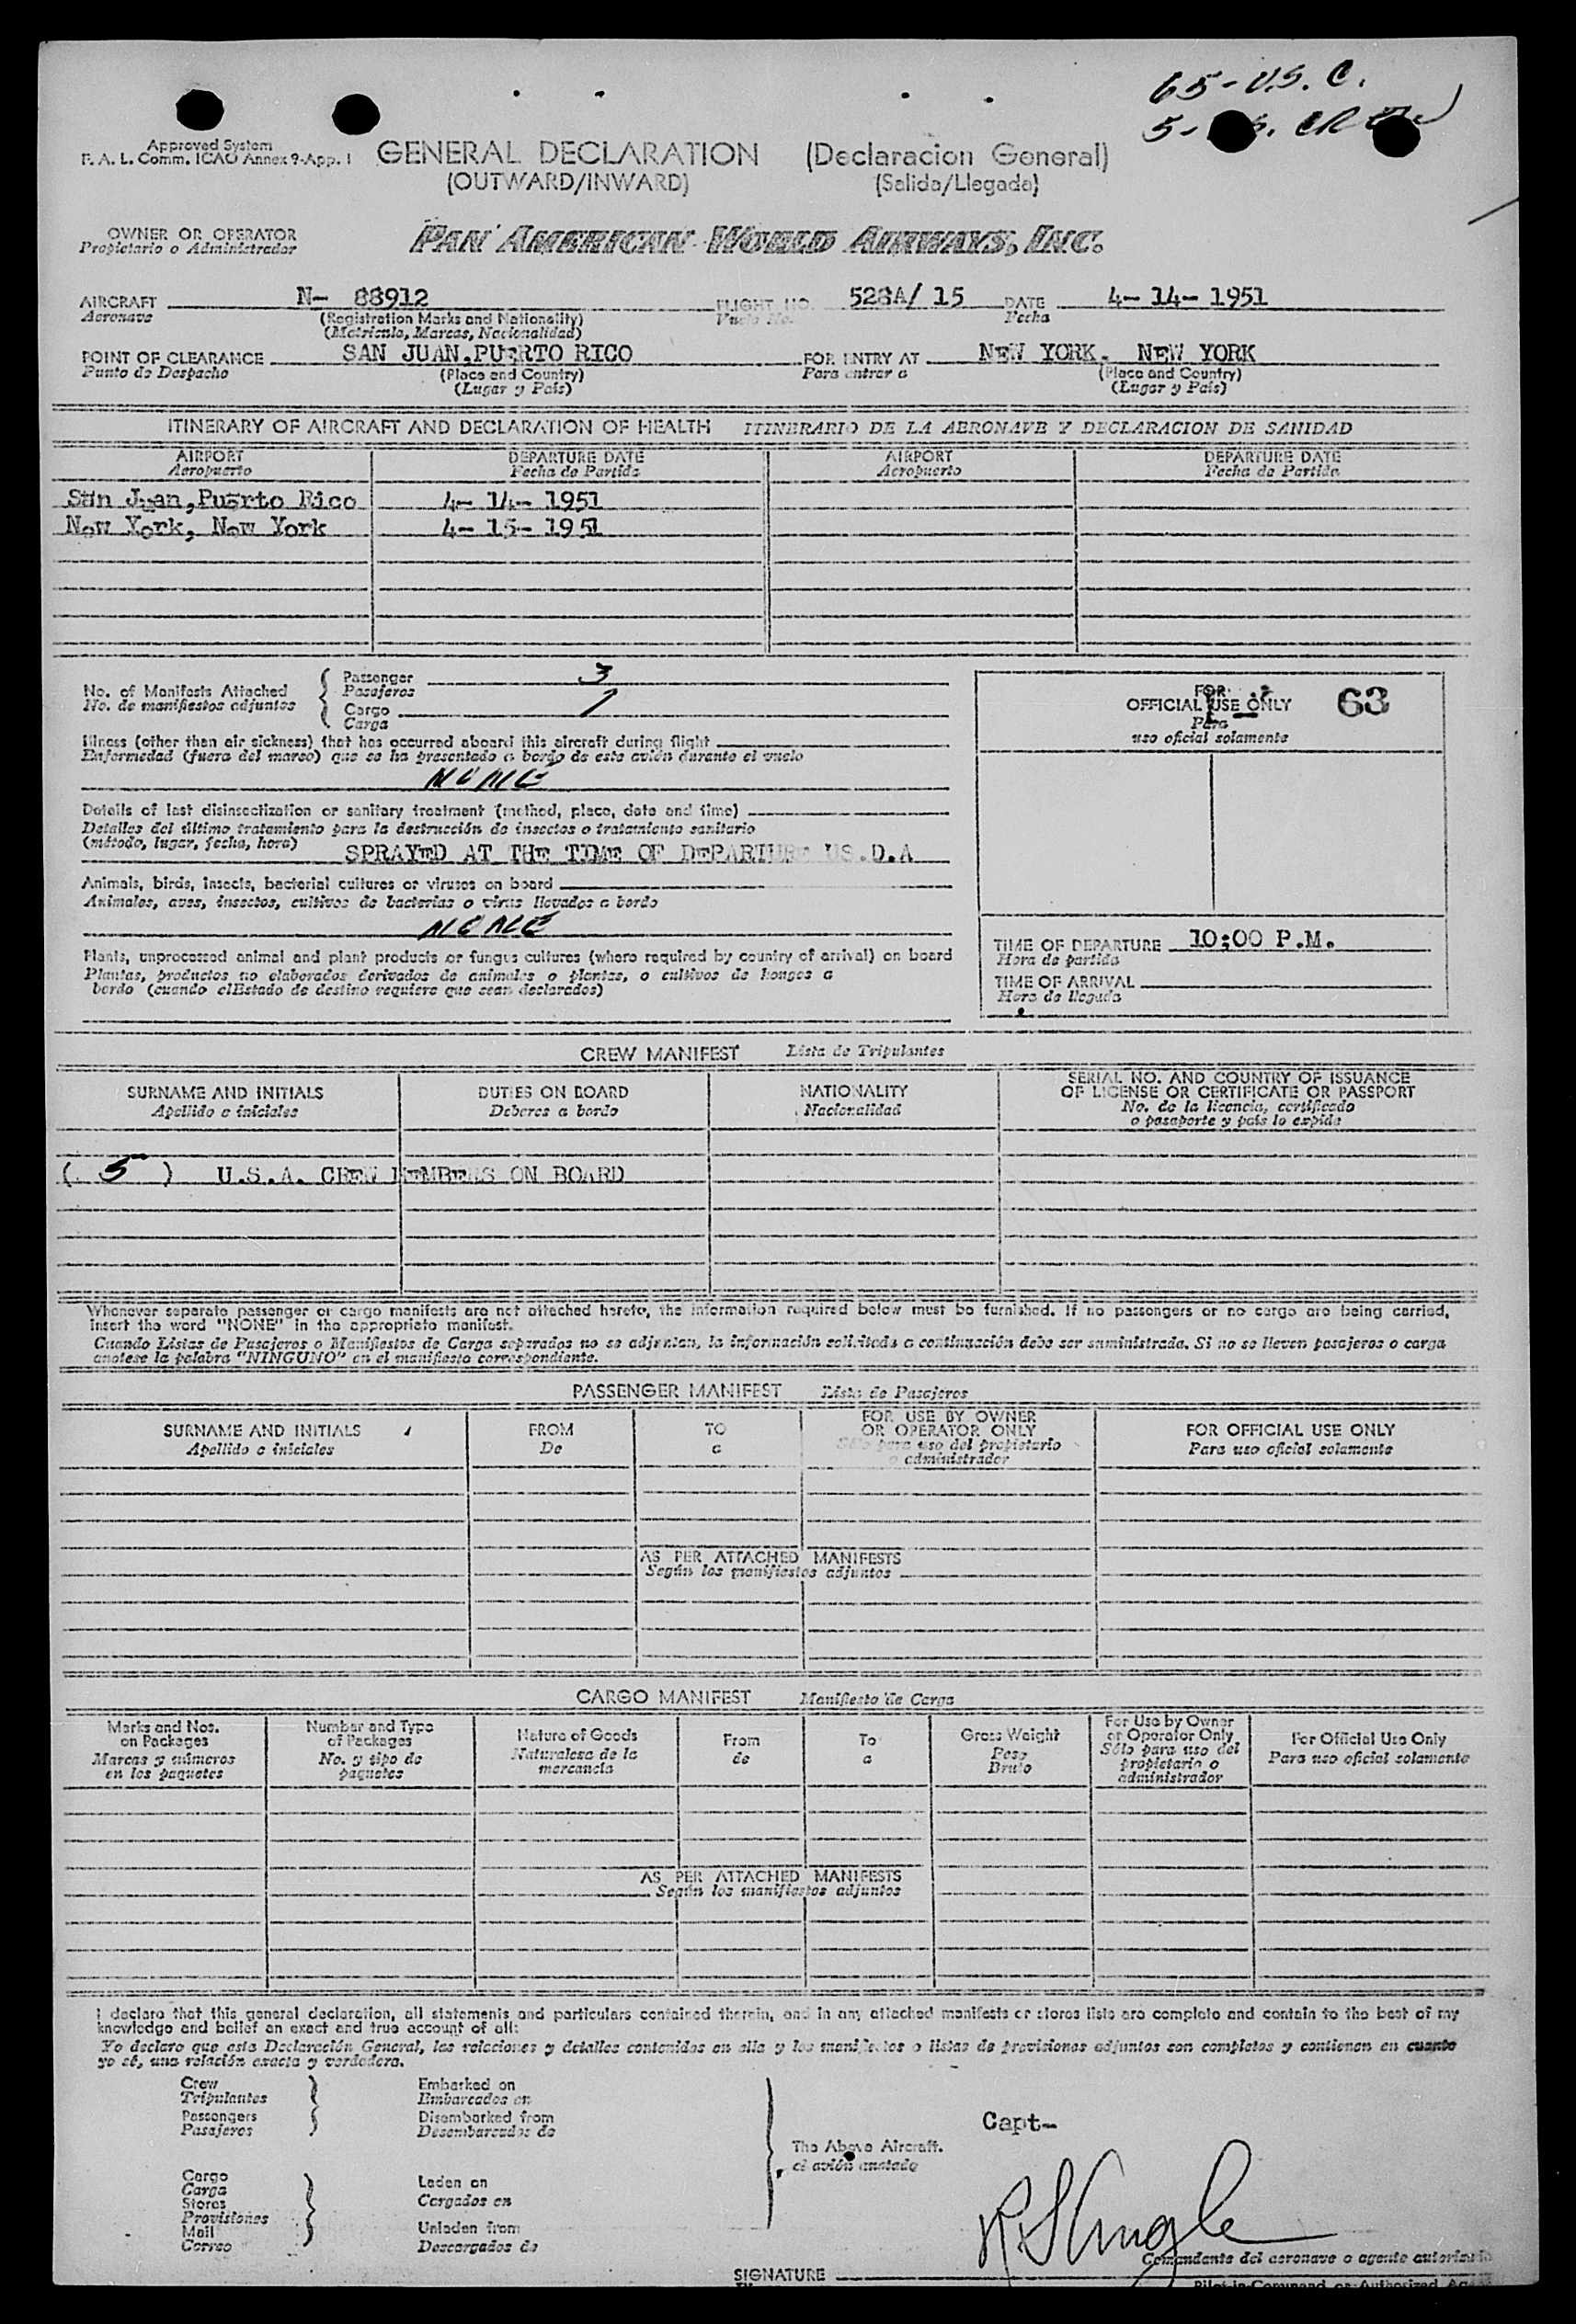 65-U.S.C.
5- S. CREW
Approved System
F. A. L. Comm. ICAO Annex 9-App. 1
GENERAL DECLARATION (Declaracion General)
(OUTWARD/INWARD) (Salida/Llegada)
OWNER OR OPERATOR
Propietario o Administrador
PAN AMERICAN WORLD AIRWAYS, INC.
AIRCRAFT N- 88912 FLIGHT NO. 528A/ 15 DATE 4- 14- 1951
Aeronave (Registration Marks and Nationality) Vuelo No. Fecha
(Matricula, Marcas, Nacionalidad)
POINT OF CLEARANCE SAN JUAN,PUERTO RICO FOR ENTRY AT NEW YORK, NEW YORK
Punto de Despacho (Place and Country) Para entrar a (Place and Country)
(Lugar y Pais) (Lugar y Pais)
ITINERARY OF AIRCRAFT AND DECLARATION OF HEALTH ITINERARIO DE LA AERONAVE Y DECLARACION DE SANIDAD
AIRPORT DEPARTURE DATE AIRPORT DEPARTURE DATE
Aeropuerto Fecha de Partida Aeropuerto Fecha de Partida
San Juan,Puerto Rico 4- 14- 1951
New York, New York 4- 15- 1951
No. of Manifests Attached
No. de manifiestos adjuntos
Passenger 3
Pasajeros
Cargo 1
Carga
Illness (other than air sickness) that has occurred aboard this aircraft during flight
Enfermedad (fuera del mareo) que se ha presentado a bordo de este avión durante el vuelo
NONE
Details of last disinsectization or sanitary treatment (method, place, date and time)
Detalles del último tratamiento para la destrucción de insectos o tratamiento sanitario
(método, lugar, fecha, hora) SPRAYED AT THE TIME OF DEPARTURE US.D.A
Animals, birds, insects, bacterial cultures or viruses on board
Animales, aves, insectos, cultivos de bacterias o virus llevados a bordo
NONE
Plants, unprocessed animal and plant products or fungus cultures (where required by country of arrival) on board
Plantas, productos no elaborados derivados de animales o plantas, o cultivos de hongos a
bordo (cuando el Estado de destino requiere que sean declarados)
FOR
OFFICIAL USE ONLY 63
Para
uso oficial solamente
TIME OF DEPARTURE 10:00 P.M.
Hora de partida
TIME OF ARRIVAL
Hora de llegada
CREW MANIFEST Lista de Tripulantes
SURNAME AND INITIALS DUTIES ON BOARD NATIONALITY SERIAL NO. AND COUNTRY OF ISSUANCE
Apellido e iniciales Deberes a bordo Nacionalidad OF LICENSE OR CERTIFICATE OR PASSPORT
No. de la licencia, certificado
o pasaporte y país lo expide
( 5 ) U.S.A. CREW MEMBERS ON BOARD
Whenever separate passenger or cargo manifests are not attached hereto, the information required below must be furnished. If no passengers or no cargo are being carried,
insert the word "NONE" in the appropriate manifest.
Cuando Listas de Pasajeros o Manifiestos de Carga separados no se adjuntan, la información solicitada a continuación debe ser suministrada. Si no se lleven pasajeros o carga
anotese la palabra "NINGUNO" en el manifiesto correspondiente.
PASSENGER MANIFEST Lista de Pasajeros
SURNAME AND INITIALS FROM TO FOR USE BY OWNER FOR OFFICIAL USE ONLY
Apellido e iniciales De a OR OPERATOR ONLY Para uso oficial solamente
Sólo para uso del propietario
o administrador
AS PER ATTACHED MANIFESTS
Según los manifiestos adjuntos
CARGO MANIFEST Manifiesto de Carga
Marks and Nos.
on Packages
Marcas y números
en los paquetes
Number and Type
of Packages
No. y tipo de
paquetes
Nature of Goods
Naturalesa de la
mercancía
From
de
To
a
Gross Weight
Peso
Bruto
For Use by Owner
or Operator Only
Sólo para uso del
propietario o
administrador
For Official Use Only
Para uso oficial solamente
AS PER ATTACHED MANIFESTS
Según los manifiestos adjuntos
I declare that this general declaration, all statements and particulars contained therein, and in any attached manifests or stores lists are complete and contain to the best of my
knowledge and belief an exact and true account of all:
Yo declaro que esta Declaración General, las relaciones y detalles contenidos en ella y los manifiestos o listas de provisiones adjuntos son completos y contienen en cuanto
yo sé, una relación exacta y verdadera.
Crew
Tripulantes
Passengers
Pasajeros
Embarked on
Embarcados en
Disembarked from
Desembarcados de
Cargo
Carga
Stores
Provisiones
Mail
Correo
Laden on
Cargados en
Unladen from
Descargados de
The Above Aircraft.
el avión anotado
Capt-
Comandante del aeronave o agente autorizado
SIGNATURE
Pilot-in-Command or Authorized Ag